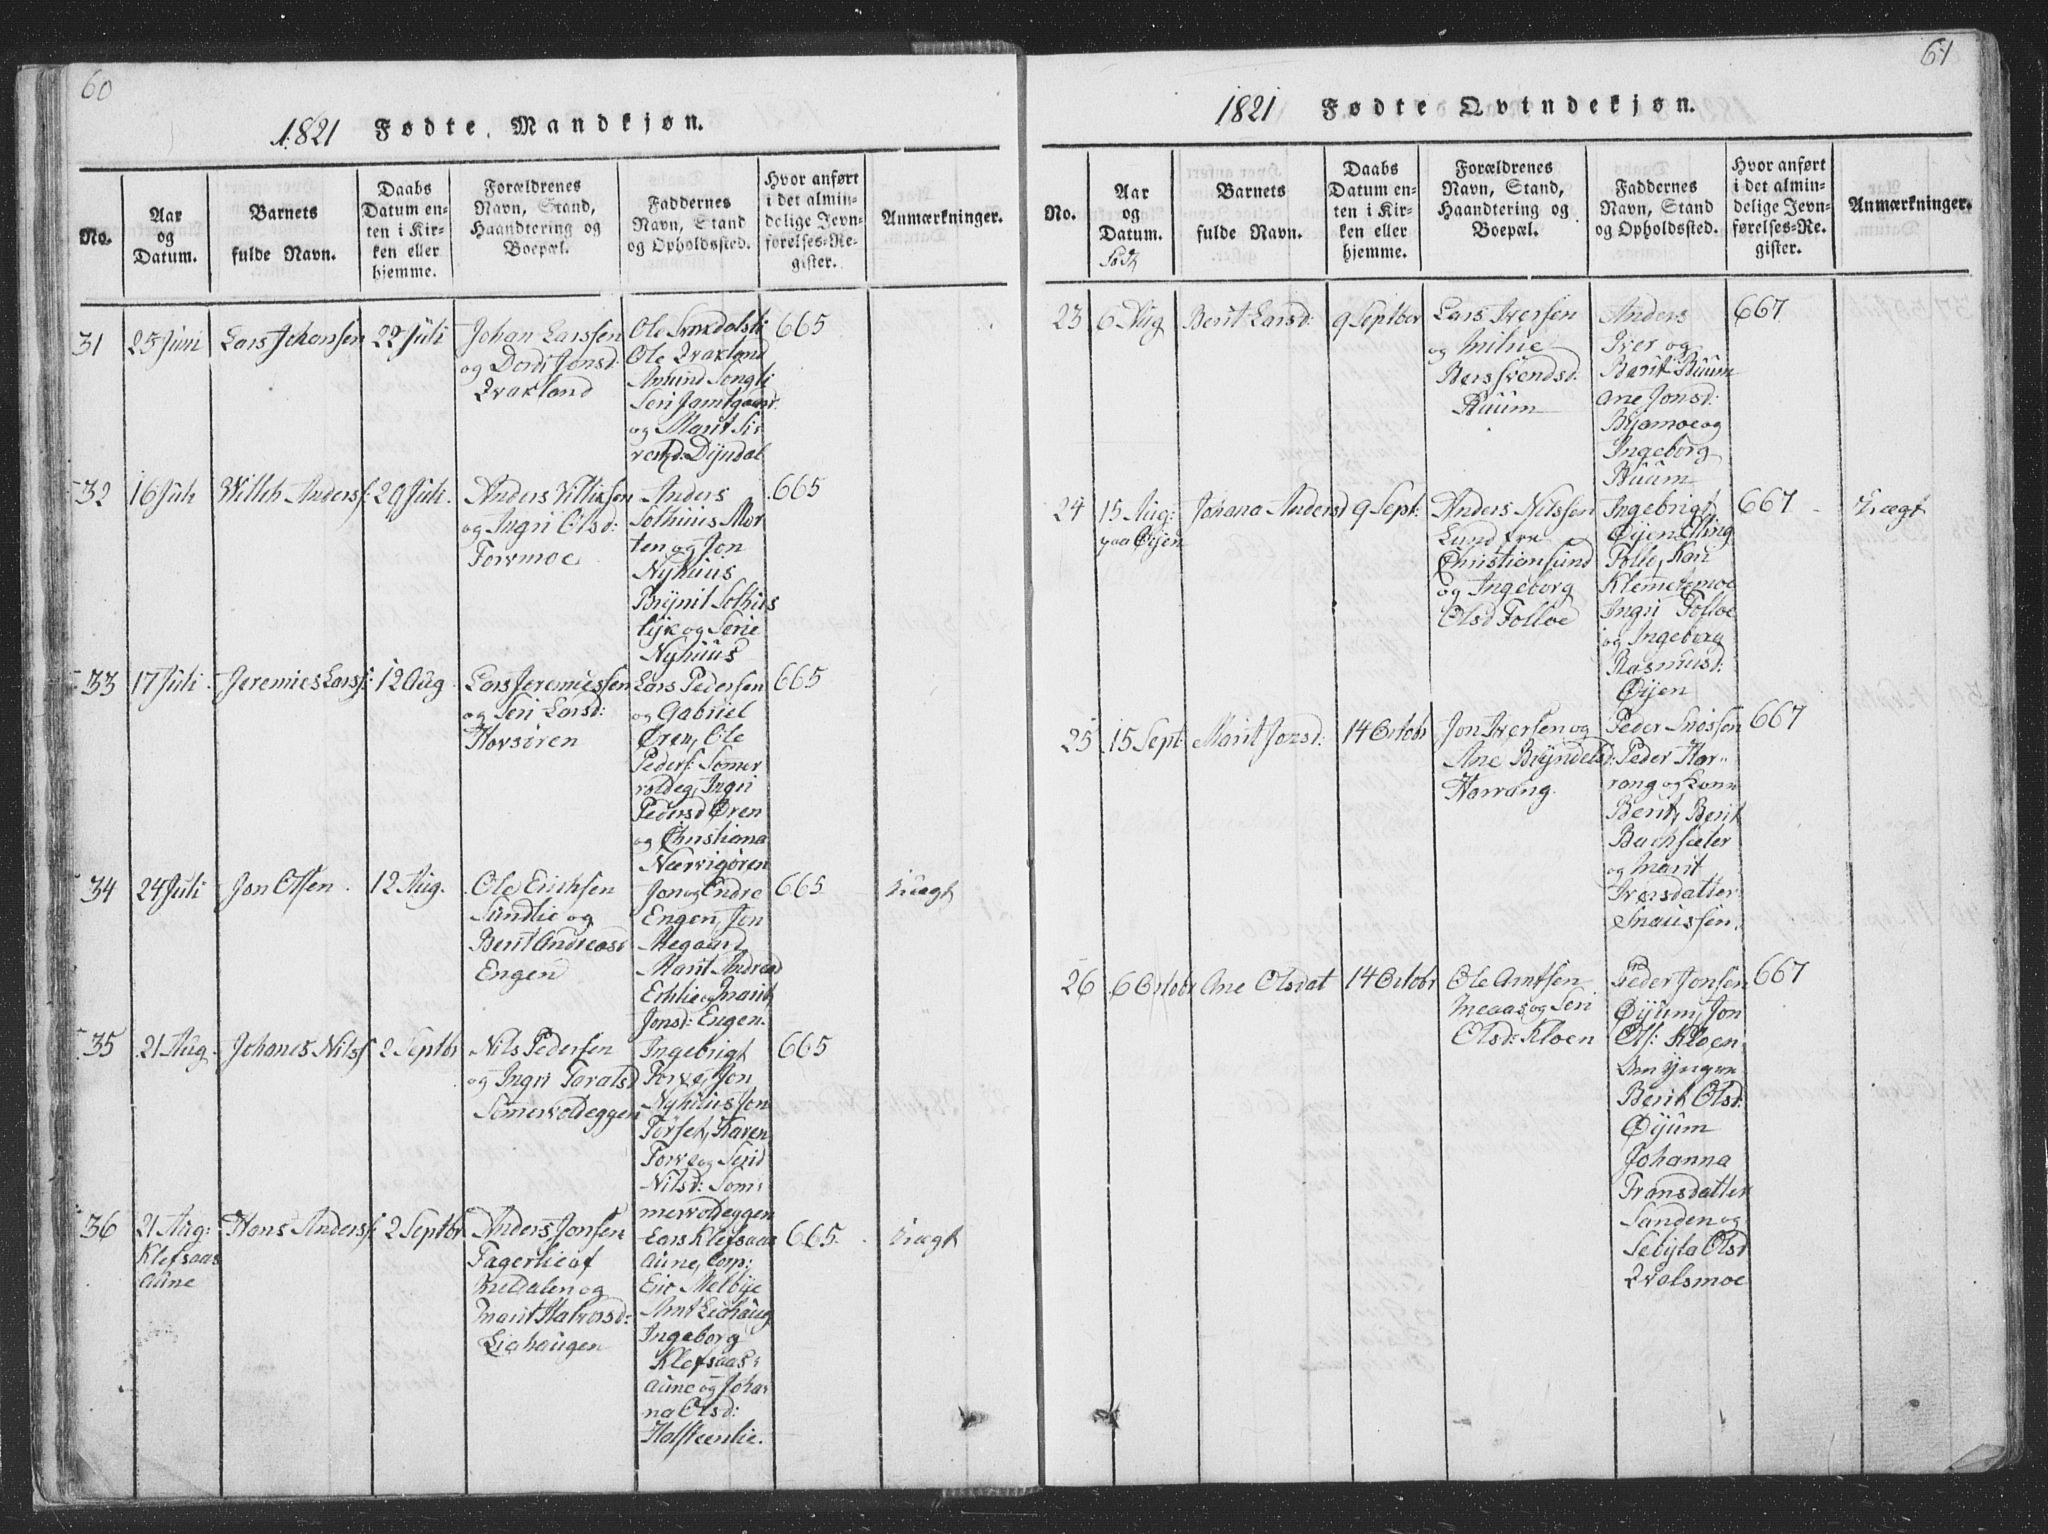 60
1821 Fødte Mandkjøn.
No.
Aar
og
Datum.
Barnets
fulde Navn.
Daabs
Datum en-
ten i Kir-
ken eller
hjemme.
Forældrenes
Navn, Stand,
Haandtering og
Boepæl.
Faddernes
Navn, Stand
og Opholdssted.
Hvor anført
i det almin-
delige Jevn-
førelses-Re-
gister.
Anmærkninger.
31
25 Juni
Lars Johansen
22 Juli
Johan Larssen
og Dordi Jonsd:
Qvakland
Ole
Ole Qvakland
Amund Songli
Seri Jamtgaard
og Marit Si-
vertsd: Dyrdal
665
32
16 Juli
Willch Anderss:
29 Juli.
Anders Villiksen
og Ingri Olsd:
Torvmoe
Anders
Solhuus Mor
ten og Jon
Nyhuus
Brynil Solhus
lyk og Serie
Nyhuus
665
33
17 Juli
Jeremies Larss:
12 Aug
Lars Jeremiessen
og Seri Larsd:
Horsøren
Lars Pedersen
og Gabriel
Øren, Ole
Peders: Somer
voldeg, Ingri
Pedersd Øren
og Christiana
Nærvigøren
665
34
24 Juli
Jon Olsen
12 Aug.
Ole Erichsen
Sundlie og
Berit Andreasd
Engen
Jon og Endre
Engen, Jon
Megaard
Marit Andread
Echlie og Marit
Jonsd: Engen.
665
Uægt
35
21 Aug.
Johanes Nilss:
2 Septbr
Nils Pedersen
og Ingri Toratsd
Somervoldeggen
Ingebrigt
Torve, Jon
Nyhuus Jon
Forset, Karen
Torve og Serid
Nilsd: Som-
mervoldeggen
665
36
21 Aug:
Klefsaas
aune
Hans Anderss:
2 Septbr
Anders Jonsen
Fagerlie af
Meldalen og
Marit Halvorsd:
Liahaugen
Lars Klefsaas
aune, Corp:
Eric Melbye
Arnt Liahaug
Ingeborg
Klefsaas-
aune og Joha-
na Olsd:
Halsteenlie.
665.
Uægt
61
1821 Fødte Qvindekjøn.
No.
Aar
og
Datum.
Født
Barnets
fulde Navn.
Daabs
Datum en-
ten i Kir-
ken eller
hjemme.
Forældrenes
Navn, Stand,
Haandtering og
Boepæl.
Faddernes
Navn, Stand
og Opholdssted.
Hvor anført
i det almin-
delige Jevn-
førelses-Re-
gister.
Anmærkninger.
23
6 Aug
Berit Larsd:
9 Septber
Lars Iversen
og Milrie
Bersvendsd:
Ruum
Anders
Iver og
Barit Ruum
Ane Jonsd:
Byamoe og
Ingeborg
Ruum
667
24
15 Aug:
paa Øyen
Johana Andersd
9 Sept:
Anders Nilssen
Lund fra
Christiansund
og Ingeborg
Olsd Folloe
Ingebrigt
Øyen Elling
Follo, Kari
Klemetsmoe
Ingri Folloe
og Ingeborg
Rasmusd:
Øyen
667
Uægt
25
15 Sept
Marit Jonsd:
14 Octobr
Jon Iversen og
Ane Bryndelsd:
Harrang.
Peder Snossen
Peder Har-
rang og Kone
Berit, Berit
Bachsæter
og Marit
Iversdatter
Snaussen.
667
26
6 Octobr
Ane Olsdat
14 Octobr
Ole Arntsen
Meaas og Seri
Olsd: Kloen
Peder Jonsen
Øyum, Jon
Ols: Kloen
den yngre
Berit Olsd:
Øyum
Johanna
Fransdatter
Sanden og
Sebyla Olsd
Qvalsmoe
667